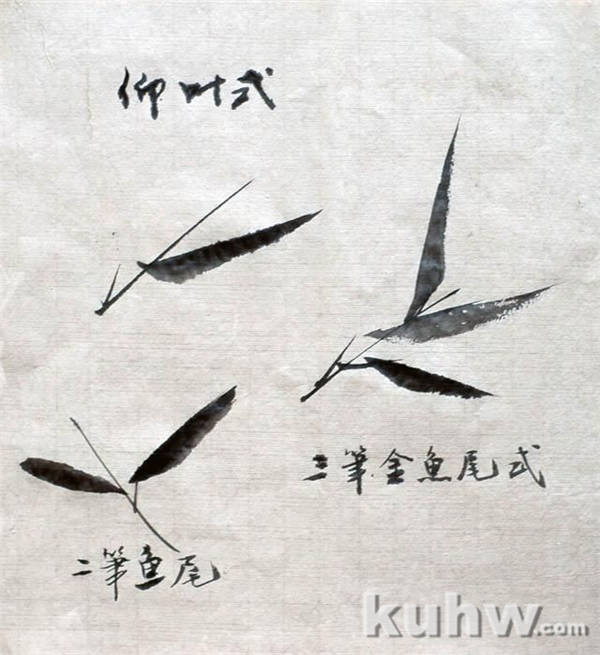 仰叶式
三筆金魚尾式
二筆魚尾
kuhw.com